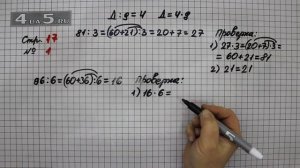 4 a 5 . ru
Δ : g = 4 Δ = 4 · g
Стр. 17
№ 1
81 : 3 = (60+21) : 3 = 20 + 7 = 27
Проверка:
1) 27 · 3 = (20+7) · 3 =
= 60 + 21 = 81
2) 21 = 21
96 : 6 = (60+36) : 6 = 16
Проверка:
1) 16 · 6 =